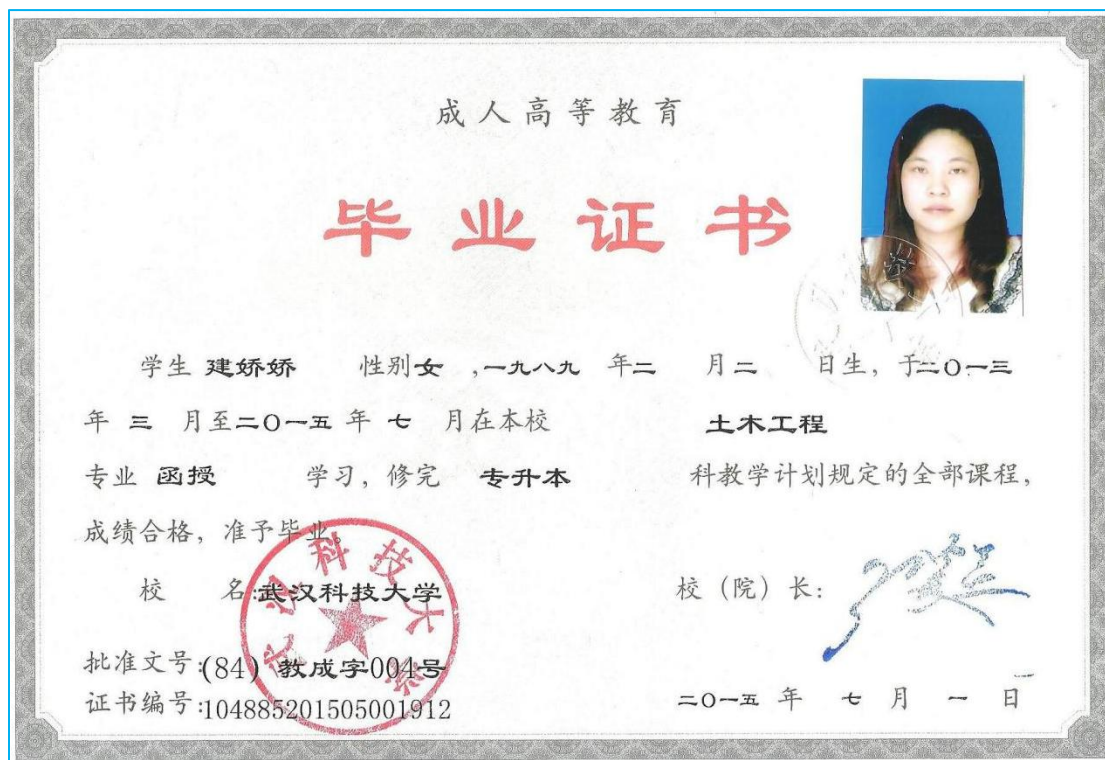 成人高等教育
毕业证书
学生 建娇娇 性别女 ,一九八九 年二 月二 日生, 于二〇一三
年 三 月至二〇一五 年 七 月在本校 土木工程
专业 函授 学习, 修完 专升本 科教学计划规定的全部课程,
成绩合格, 准予毕业。
校 名:武汉科技大学 校（院）长:
武汉科技大学
批准文号:(84) 教成字004号
证书编号:104885201505001912 二〇一五 年 七 月 一 日